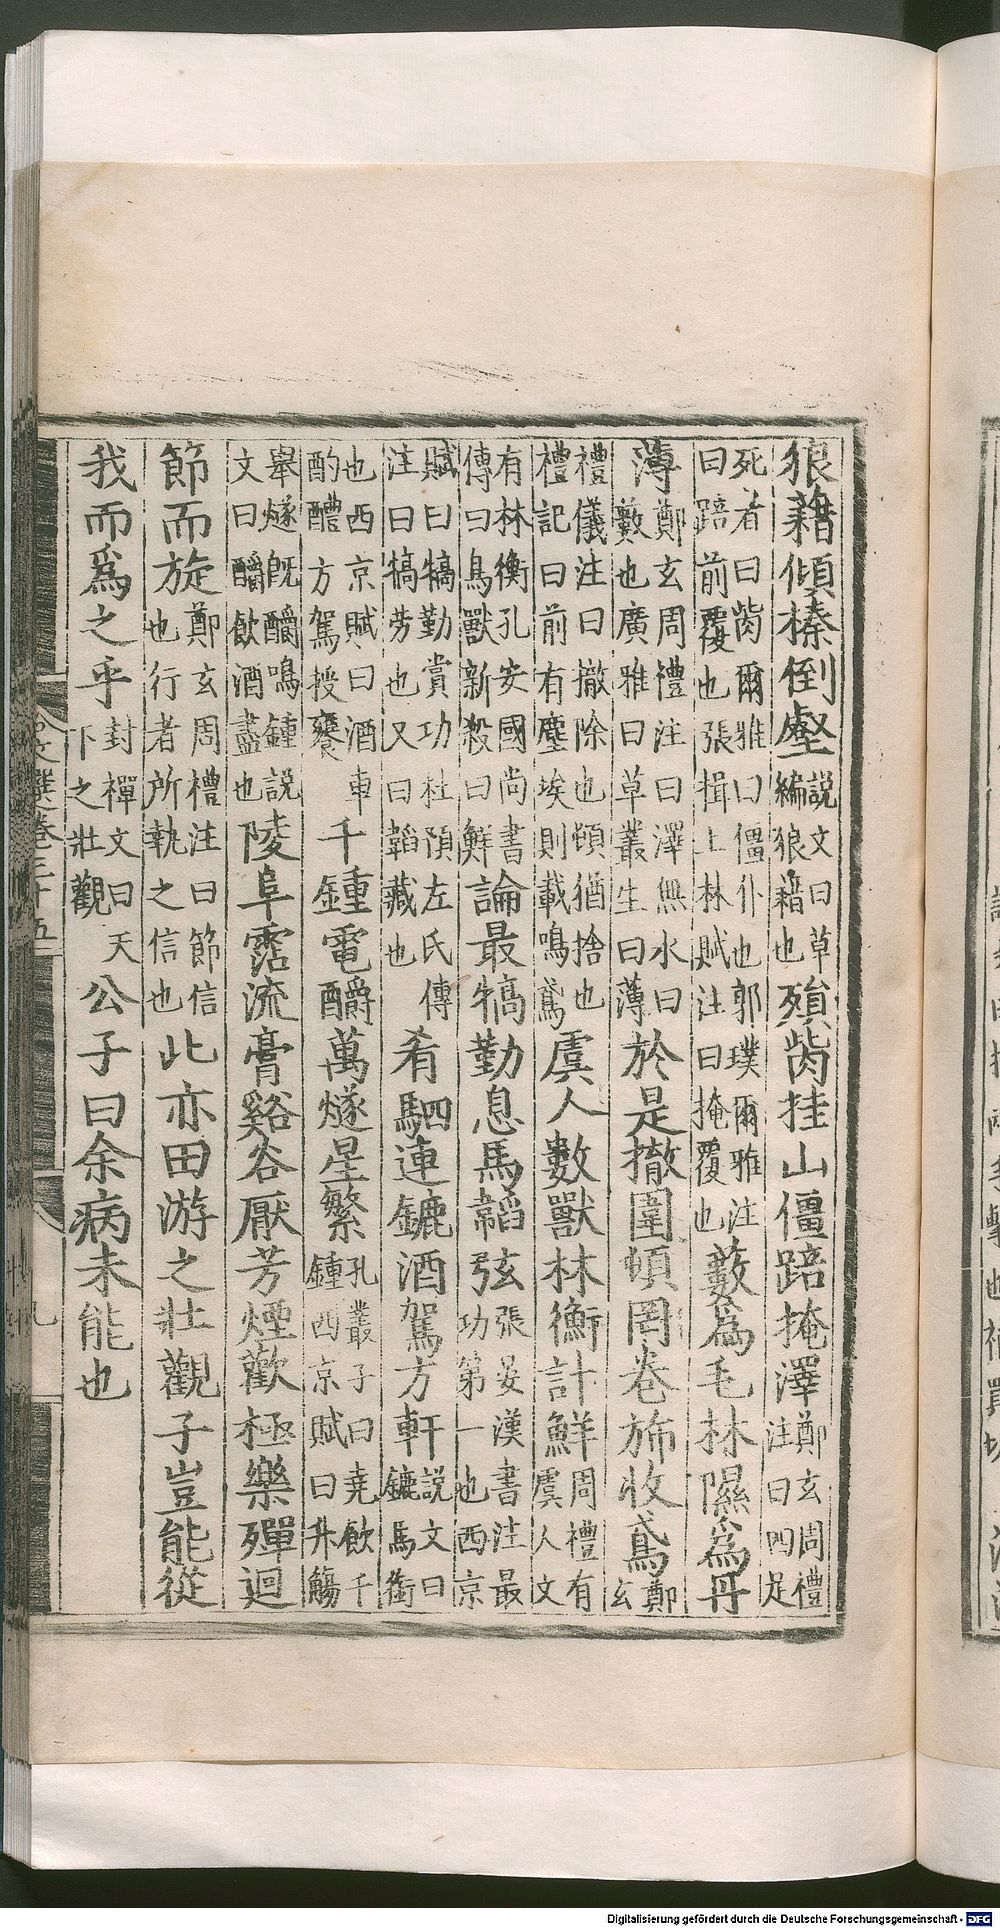 狼藉傾榛倒壑說文曰草編狼藉也殞胔挂山僵踣掩澤鄭玄周禮注曰四足
死者曰胔爾雅曰僵仆也郭璞爾雅注曰踣前覆也張揖上林賦注曰掩覆也藪爲毛林隰爲丹
薄鄭玄周禮注曰澤無水曰藪也廣雅曰草叢生曰薄於是撤圍頓罔卷旆收鳶鄭玄
禮儀注曰撤除也頓猶捨也禮記曰前有塵埃則載鳴鳶虞人數獸林衡計鮮周禮有虞人文
有林衡孔安國尚書傳曰鳥獸新殺曰鮮論最犒勤息馬韜弦張晏漢書注最功第一也西京
賦曰犒勤賞功杜預左氏傳注曰犒勞也又曰韜藏也肴駟連鑣酒駕方軒說文曰鑣馬銜
也西京賦曰酒車酌醴方駕授饔千鍾電釂萬燧星繁孔叢子曰堯飲千鍾西京賦曰升觴
舉燧旣釂鳴鍾說文曰釂飲酒盡也陵阜霑流膏谿谷厭芳煙歡極樂殫迴
節而旋鄭玄周禮注曰節信也行者所執之信也此亦田游之壯觀子豈能從
我而爲之乎封禪文曰天下之壯觀公子曰余病未能也
文選卷三十五
九
Digitalisierung gefördert durch die Deutsche Forschungsgemeinschaft - DFG